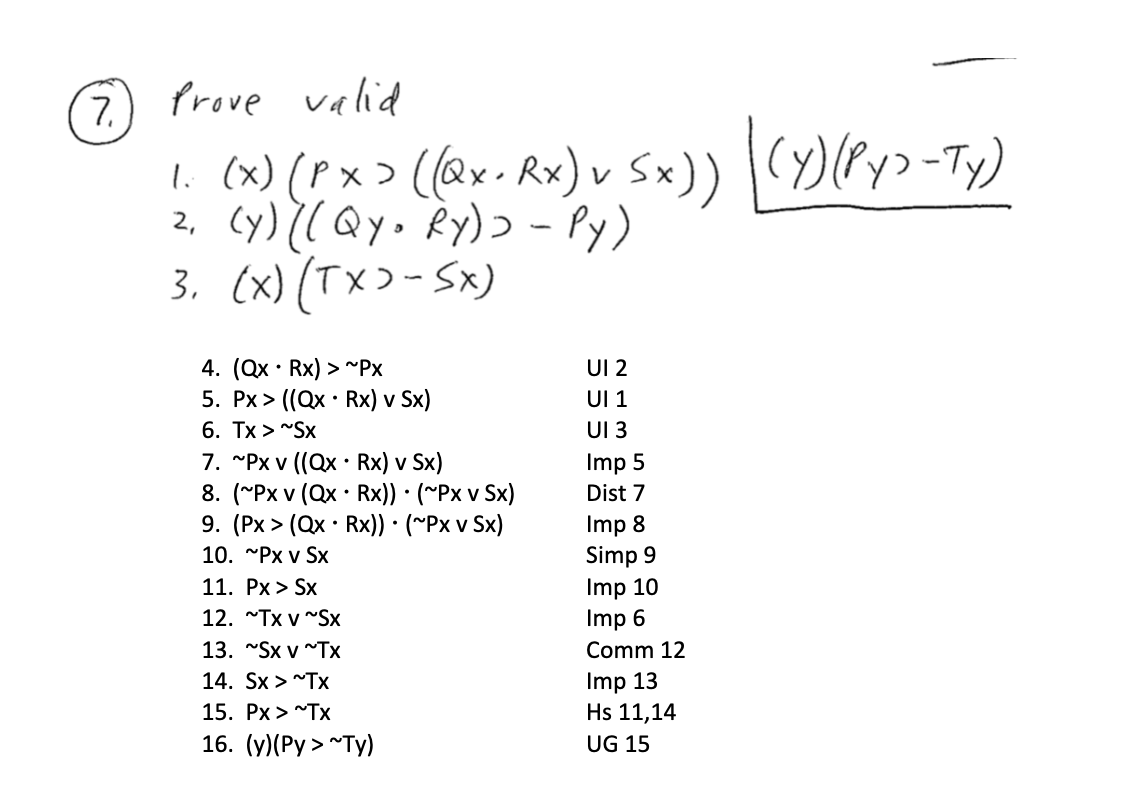 7. Prove valid
1. (x)(Px ⊃ ((Qx · Rx) v Sx)) | (y)(Py ⊃ -Ty)
2, (y)((Qy · Ry) ⊃ - Py)
3. (x)(Tx ⊃ - Sx)
4. (Qx · Rx) > ~Px UI 2
5. Px > ((Qx · Rx) v Sx) UI 1
6. Tx > ~Sx UI 3
7. ~Px v ((Qx · Rx) v Sx) Imp 5
8. (~Px v (Qx · Rx)) · (~Px v Sx) Dist 7
9. (Px > (Qx · Rx)) · (~Px v Sx) Imp 8
10. ~Px v Sx Simp 9
11. Px > Sx Imp 10
12. ~Tx v ~Sx Imp 6
13. ~Sx v ~Tx Comm 12
14. Sx > ~Tx Imp 13
15. Px > ~Tx Hs 11,14
16. (y)(Py > ~Ty) UG 15